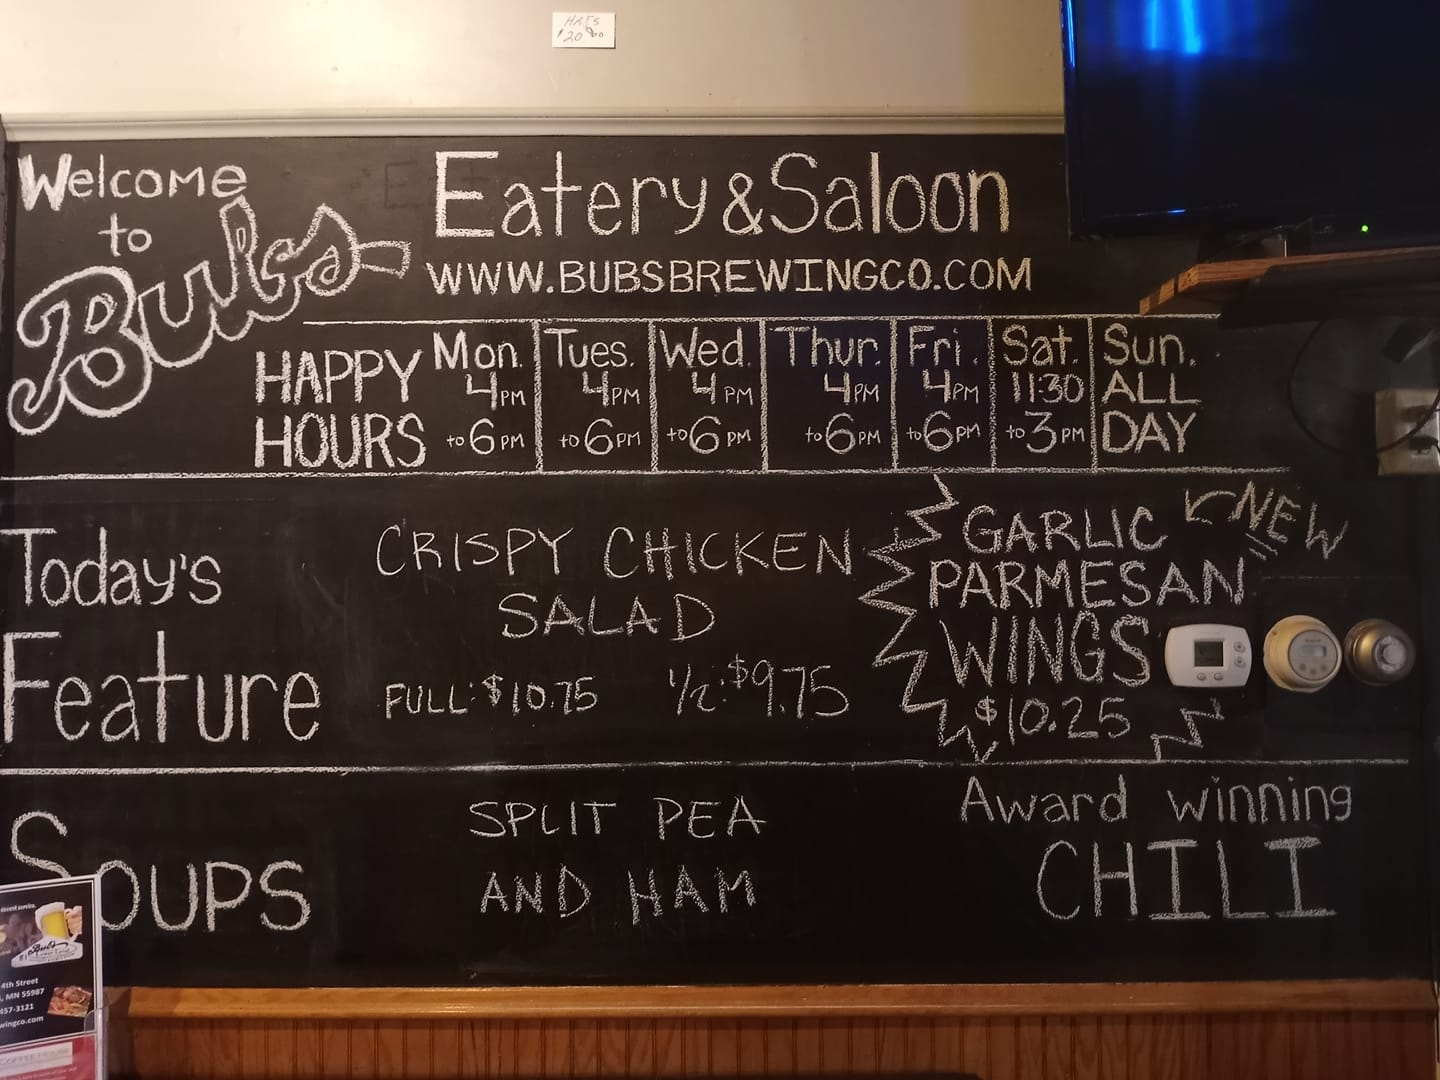 HATS
$20.00
Welcome
to
Bubs
Eatery & Saloon
WWW.BUBSBREWINGCO.COM
HAPPY
HOURS
Mon.
4PM
to 6PM
Tues.
4PM
to 6PM
Wed.
4PM
to 6PM
Thur.
4PM
to 6PM
Fri.
4PM
to 6PM
Sat.
11:30
to 3PM
Sun.
ALL
DAY
Today's
Feature
CRISPY CHICKEN
SALAD
FULL: $10.75 1/2: $9.75
NEW
GARLIC
PARMESAN
WINGS
$10.25
Soups
SPLIT PEA
AND HAM
Award winning
CHILI
decent service.
Bub's
4th Street
, MN 55987
457-3121
wingco.com
COFFEE HOUSE